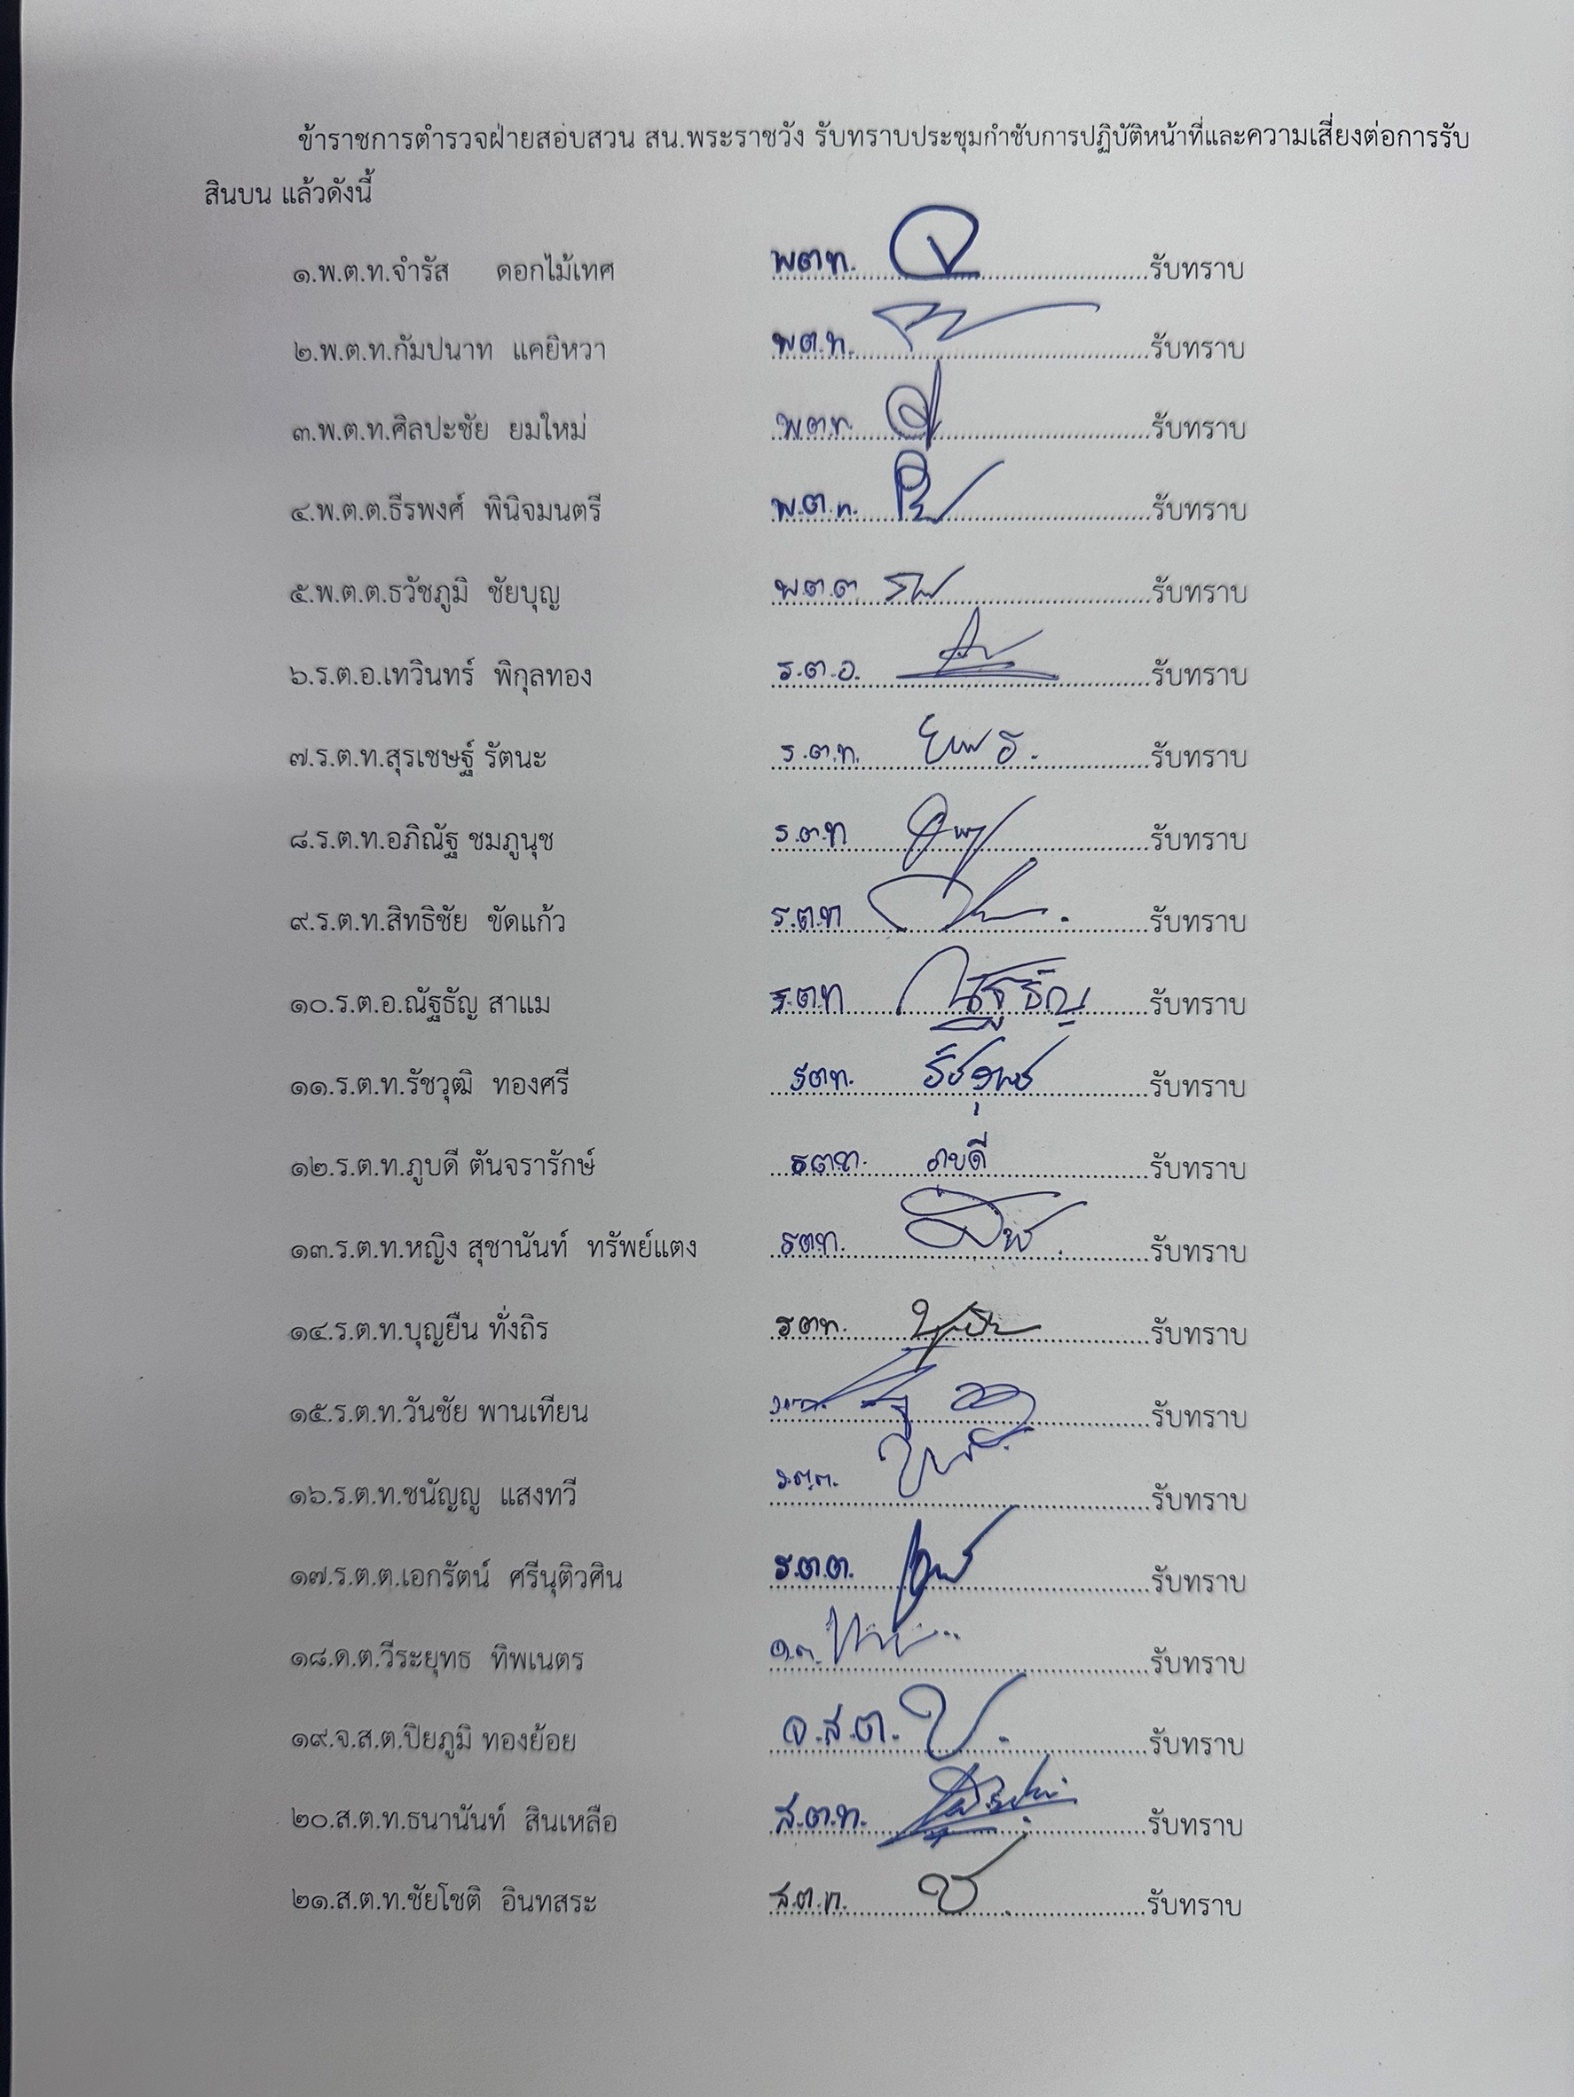 ข้าราชการตำรวจฝ่ายสอบสวน สน.พระราชวัง รับทราบประชุมกำชับการปฏิบัติหน้าที่และความเสี่ยงต่อการรับ
สินบน แล้วดังนี้
๑.พ.ต.ท.จำรัส ดอกไม้เทศ พตท. ........รับทราบ
๒.พ.ต.ท.กัมปนาท แคยิหวา พต.ท. ........รับทราบ
๓.พ.ต.ท.ศิลปะชัย ยมใหม่ พตท. ........รับทราบ
๔.พ.ต.ต.ธีรพงศ์ พินิจมนตรี พ.ต.ท. ........รับทราบ
๕.พ.ต.ต.ธวัชภูมิ ชัยบุญ พ.ต.ต ........รับทราบ
๖.ร.ต.อ.เทวินทร์ พิกุลทอง ร.ต.อ. ........รับทราบ
๗.ร.ต.ท.สุรเชษฐ์ รัตนะ ร.ต.ท. ........รับทราบ
๘.ร.ต.ท.อภิณัฐ ชมภูนุช ร.ต.ท ........รับทราบ
๙.ร.ต.ท.สิทธิชัย ขัดแก้ว ร.ต.ท ........รับทราบ
๑๐.ร.ต.อ.ณัฐธัญ สาแม ร.ต.ท ณัฐธัญ ........รับทราบ
๑๑.ร.ต.ท.รัชวุฒิ ทองศรี รตท. ........รับทราบ
๑๒.ร.ต.ท.ภูบดี ตันจรารักษ์ รตท. ภูบดี ........รับทราบ
๑๓.ร.ต.ท.หญิง สุชานันท์ ทรัพย์แตง รตท. ........รับทราบ
๑๔.ร.ต.ท.บุญยืน ทั่งถิร รตท. ........รับทราบ
๑๕.ร.ต.ท.วันชัย พานเทียน ........รับทราบ
๑๖.ร.ต.ท.ชนัญญู แสงทวี ร.ต.ต. ........รับทราบ
๑๗.ร.ต.ต.เอกรัตน์ ศรีนุติวศิน ร.ต.ต. ........รับทราบ
๑๘.ด.ต.วีระยุทธ ทิพเนตร ด.ต. ........รับทราบ
๑๙.จ.ส.ต.ปิยภูมิ ทองย้อย จ.ส.ต. ........รับทราบ
๒๐.ส.ต.ท.ธนานันท์ สินเหลือ ส.ต.ท. ........รับทราบ
๒๑.ส.ต.ท.ชัยโชติ อินทสระ ส.ต.ท. ........รับทราบ